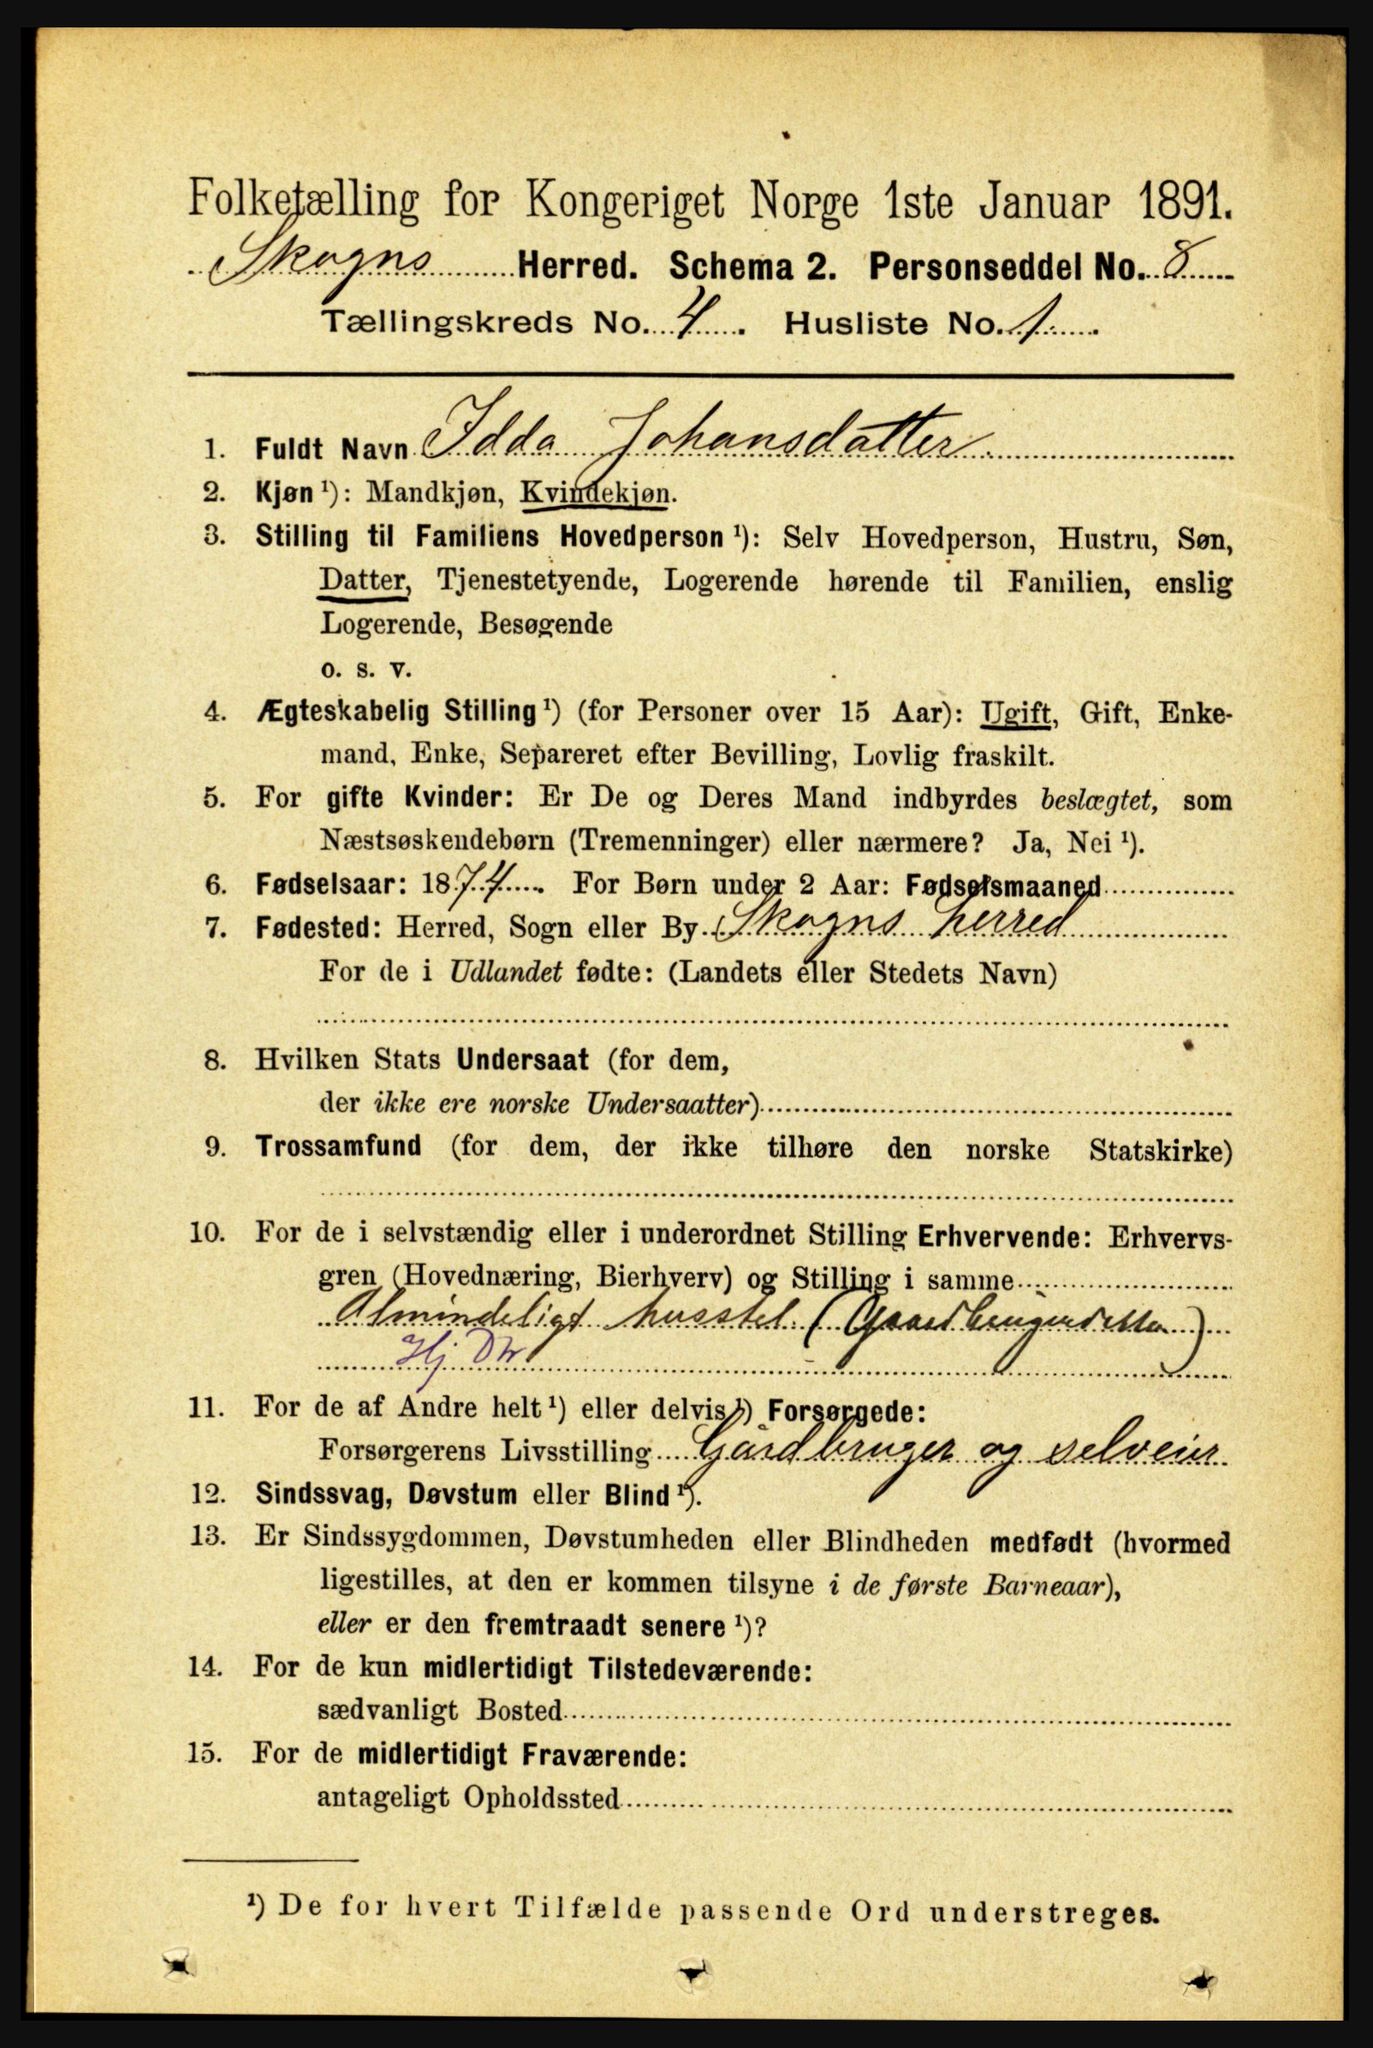 Folketælling for Kongeriget Norge 1ste Januar 1891.
Skogns Herred. Schema 2. Personseddel No. 8
Tællingskreds No. 4. Husliste No. 1.
1. Fuldt Navn Idda Johansdatter
2. Kjøn ¹): Mandkjøn, Kvindekjøn.
3. Stilling til Familiens Hovedperson ¹): Selv Hovedperson, Hustru, Søn,
Datter, Tjenestetyende, Logerende hørende til Familien, enslig
Logerende, Besøgende
o. s. v.
4. Ægteskabelig Stilling ¹) (for Personer over 15 Aar): Ugift, Gift, Enke-
mand, Enke, Separeret efter Bevilling, Lovlig fraskilt.
5. For gifte Kvinder: Er De og Deres Mand indbyrdes beslægtet, som
Næstsøskendebørn (Tremenninger) eller nærmere? Ja, Nei ¹).
6. Fødselsaar: 1874. For Børn under 2 Aar: Fødselsmaaned
7. Fødested: Herred, Sogn eller By Skogns herred
For de i Udlandet fødte: (Landets eller Stedets Navn)
8. Hvilken Stats Undersaat (for dem,
der ikke ere norske Undersaatter)
9. Trossamfund (for dem, der ikke tilhøre den norske Statskirke)
10. For de i selvstændig eller i underordnet Stilling Erhvervende: Erhvervs-
gren (Hovednæring, Bierhverv) og Stilling i samme
Almindeligt husstel (Gaardbrugerdatter)
Hj Dtr
11. For de af Andre helt ¹) eller delvis ¹) Forsørgede:
Forsørgerens Livsstilling Gårdbruger og selveier
12. Sindssvag, Døvstum eller Blind ¹).
13. Er Sindssygdommen, Døvstumheden eller Blindheden medfødt (hvormed
ligestilles, at den er kommen tilsyne i de første Barneaar),
eller er den fremtraadt senere ¹)?
14. For de kun midlertidigt Tilstedeværende:
sædvanligt Bosted
15. For de midlertidigt Fraværende:
antageligt Opholdssted
¹) De for hvert Tilfælde passende Ord understreges.